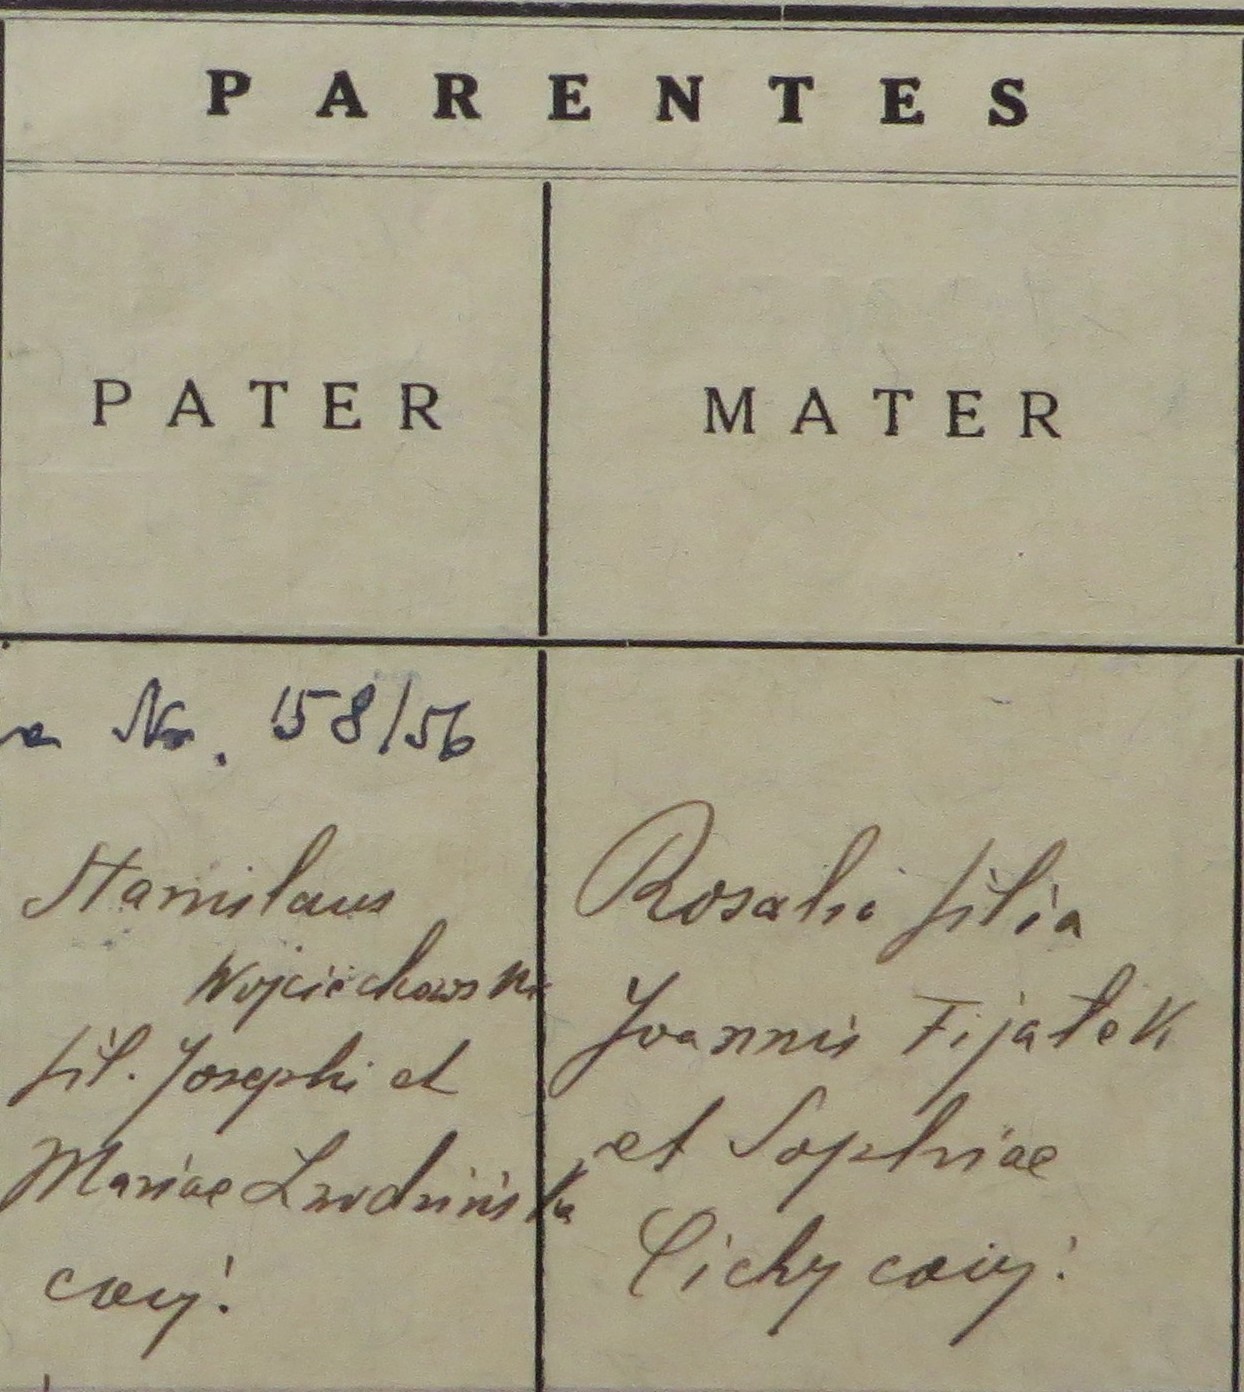 PARENTES
PATER
MATER
Nr. 158/56
Stanislaus
Wojciechowski
fil. Josephi et
Mariae
conj:
Rosalia filia
Joannis Fijałek
et Sophiae
Cichy conj: